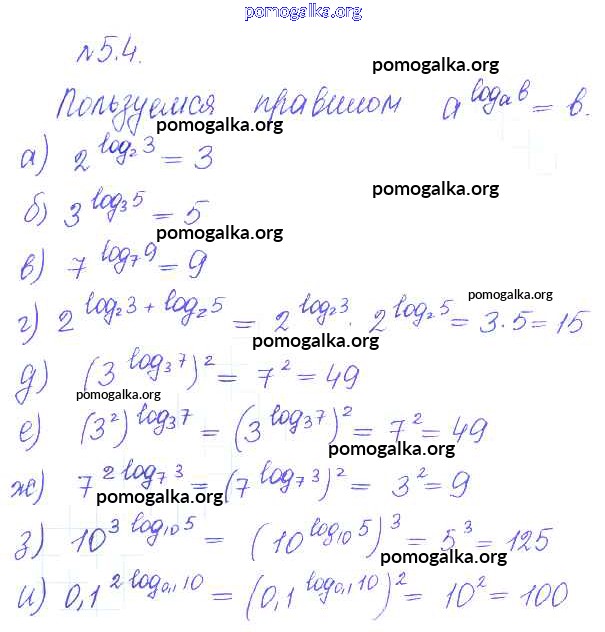 pomogalka.org
№5.4.
pomogalka.org
Пользуемся правилом a^(log_a b) = b.
pomogalka.org
а) 2^(log_2 3) = 3
pomogalka.org
б) 3^(log_3 5) = 5
pomogalka.org
в) 7^(log_7 9) = 9
pomogalka.org
г) 2^(log_2 3 + log_2 5) = 2^(log_2 3) · 2^(log_2 5) = 3·5 = 15
pomogalka.org
д) (3^(log_3 7))^2 = 7^2 = 49
pomogalka.org
е) (3^2)^(log_3 7) = (3^(log_3 7))^2 = 7^2 = 49
pomogalka.org
ж) 7^(2 log_7 3) = (7^(log_7 3))^2 = 3^2 = 9
pomogalka.org
з) 10^(3 log_10 5) = (10^(log_10 5))^3 = 5^3 = 125
pomogalka.org
и) 0,1^(2 log_0,1 10) = (0,1^(log_0,1 10))^2 = 10^2 = 100